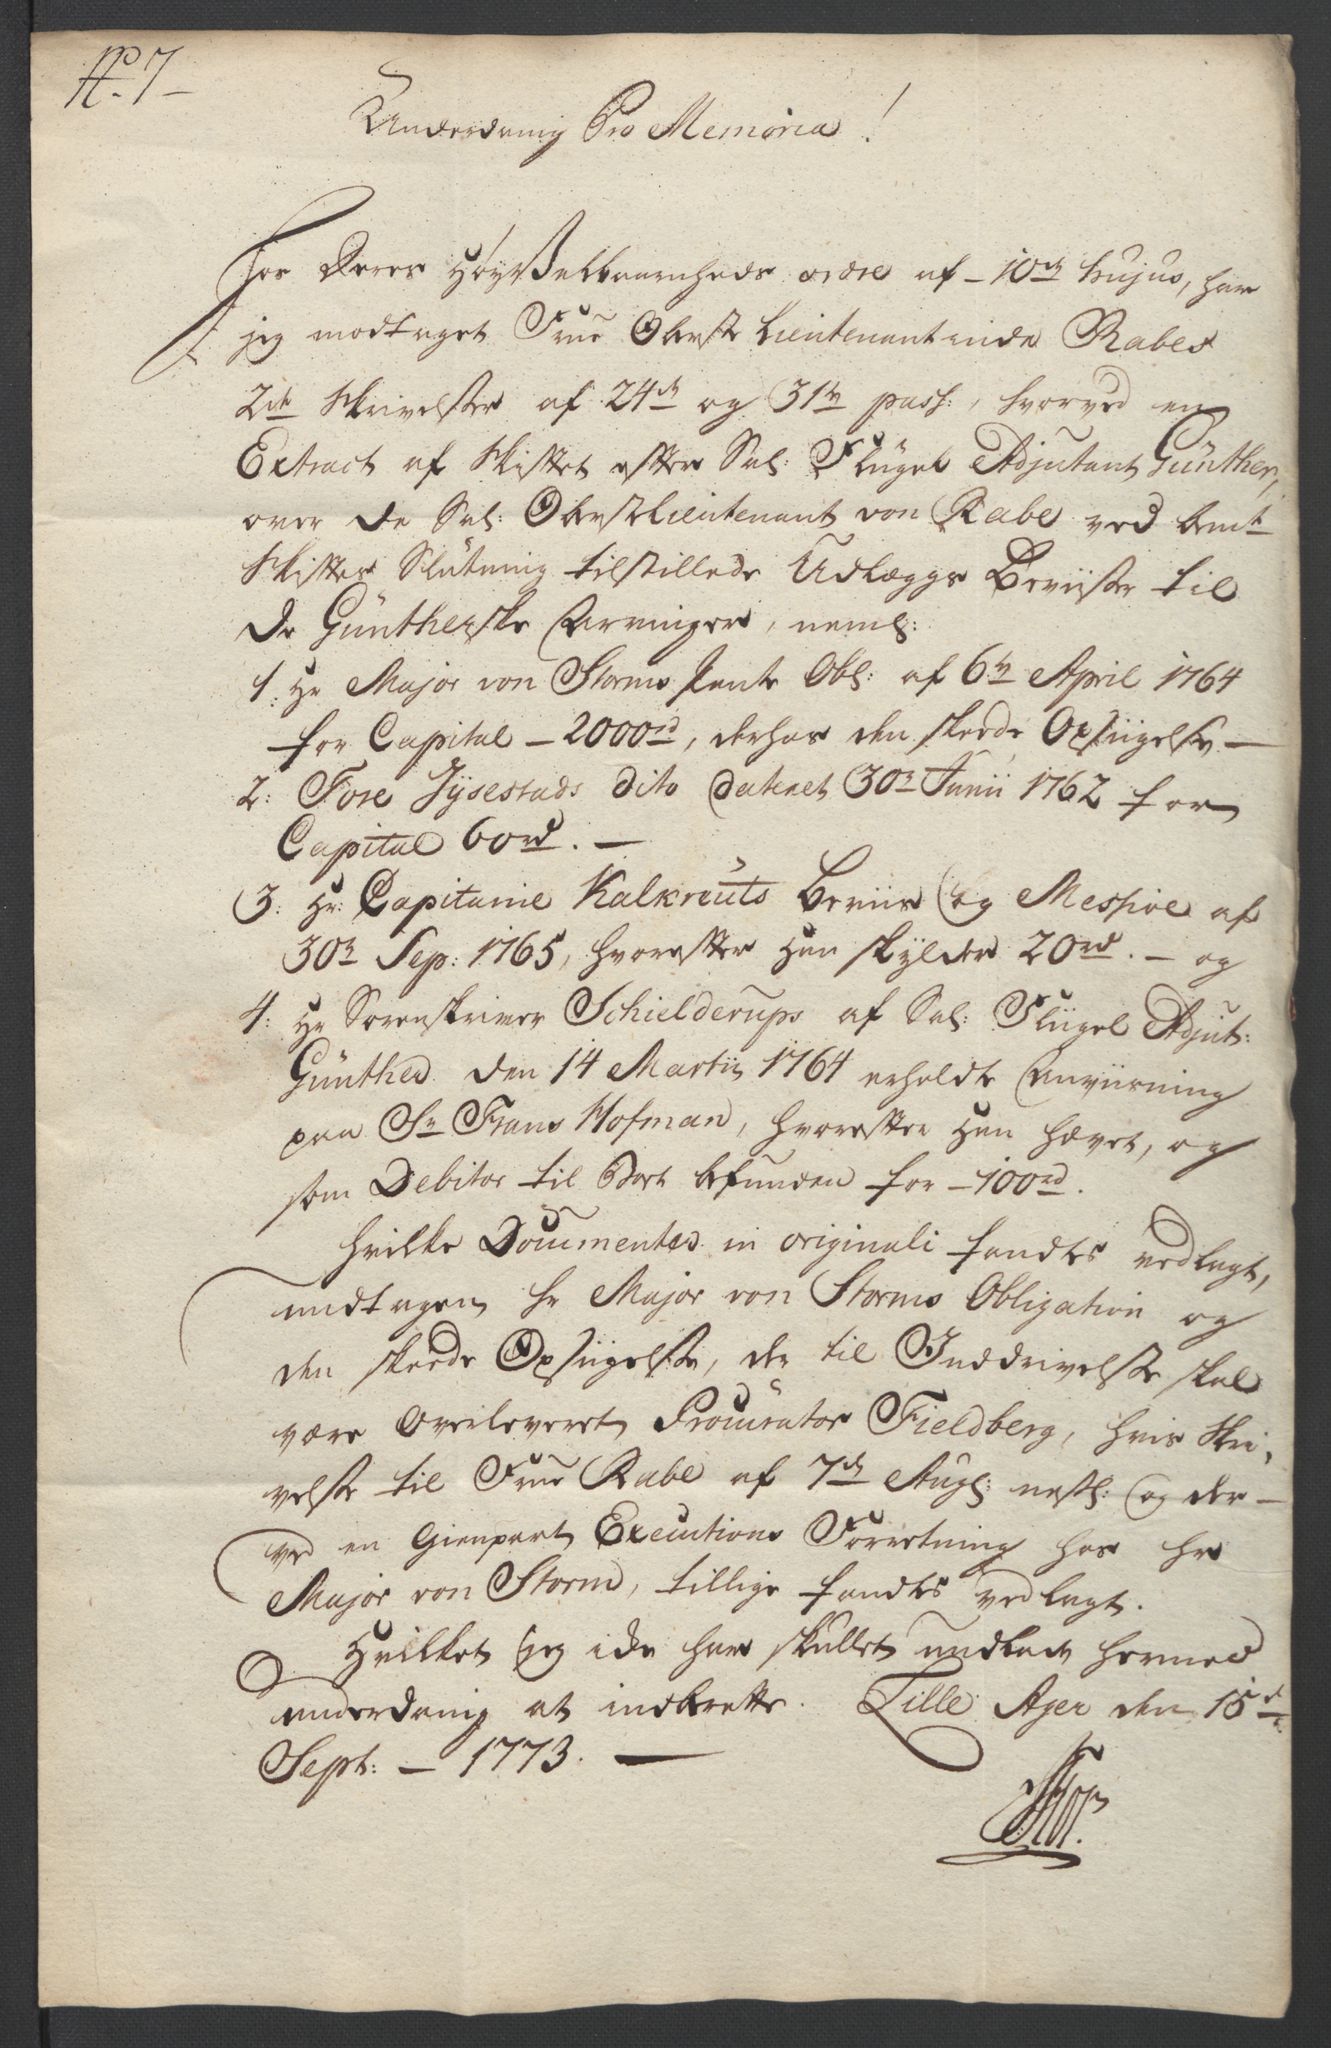 No. 7
Underdanig Pro Memoria!
For Deres Høyædelbaarenheds ordre af 10de hujus, har
jeg modtaget Frue Oberst Lieutenantinde Rabes
2de Skrivelser af 24de og 31te pass:, hvorved en
Extract af Skiftet efter Sal: Flügel Adjutant Günther,
over de Sal: Oberstlieutenant von Rabe ved bemte
Skiftes Slutning tilstillede Udlægs Beviiser til
de Güntherske Arvinger, neml:
1. Hr Major von Storms Pante Obl: af 6te April 1764
for Capital - 2000rd, derhos den skeede Opsigelse. —
2. Tore Jysestads dito dateret 30te Junii 1762 for
Capital 60rd. —
3. Hr: Capitaine Kalkreuts Beviis og Messive af
30te Sep: 1765, hvorefter Han skylder 20rd. — og
4. Hr Sorenskriver Schielderups af Sal: Flügel Adjut:
Günther den 14 Martii 1764 erholdte Anviisning
paa Sr Frans Hofman, hvorefter Han hævet, og
som Debitor til Boet befunden for - 100rd.
Hvilke Documenter in originali fandtes vedlagt,
undtagen Hr Major von Storms Obligation og
den skeede Opsigelse, der til Inddrivelse skal
være Overleveret Procurator Fieldberg, hvis Skri-
velse til Frue Rabe af 7de Aug: næstl: og der-
ved en Gienpart Executions Forretning hos Hr
Major von Storm, tillige fandtes vedlagt.
Hvilket jeg icke har skullet undlade hermed
underdanig at indberette. Lille Ager den 15de
Sept: — 1773. —